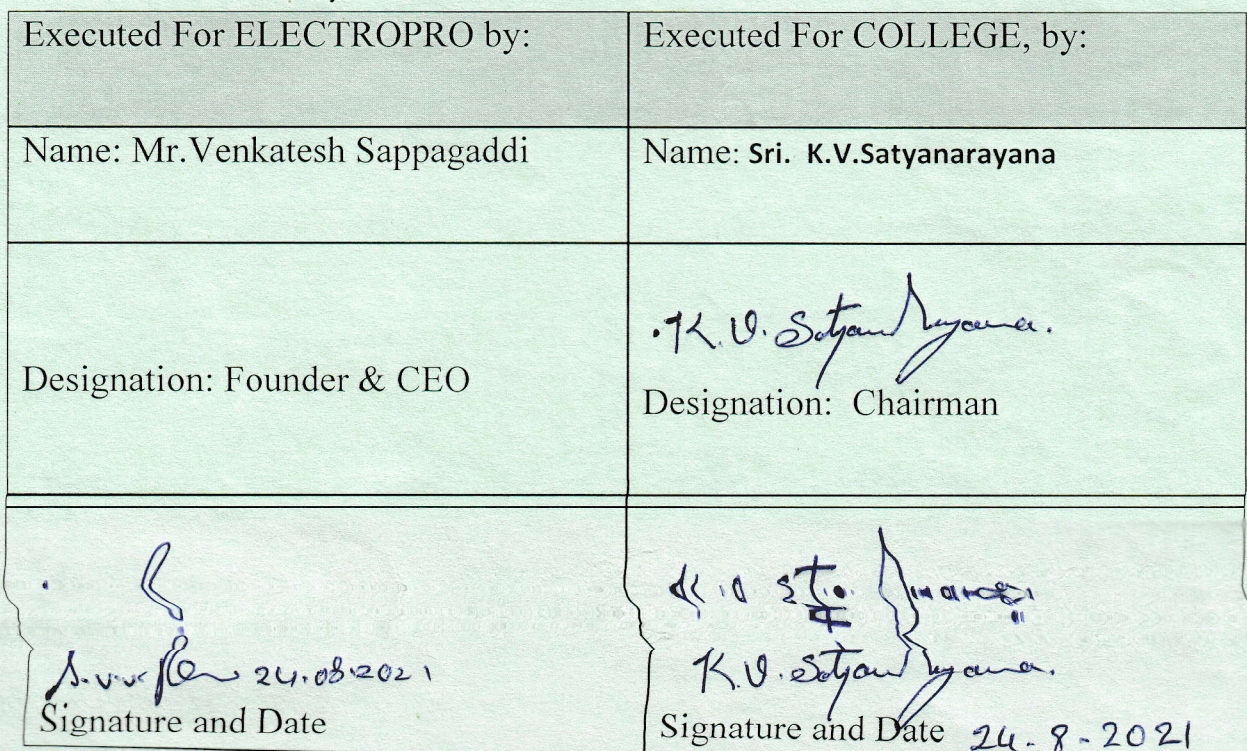 Executed For ELECTROPRO by:
Executed For COLLEGE, by:
Name: Mr.Venkatesh Sappagaddi
Name: Sri. K.V.Satyanarayana
K.V. Satyanarayana.
Designation: Founder & CEO
Designation: Chairman
24.08.2021
Signature and Date
K.V. Satyanarayana.
Signature and Date 24-8-2021